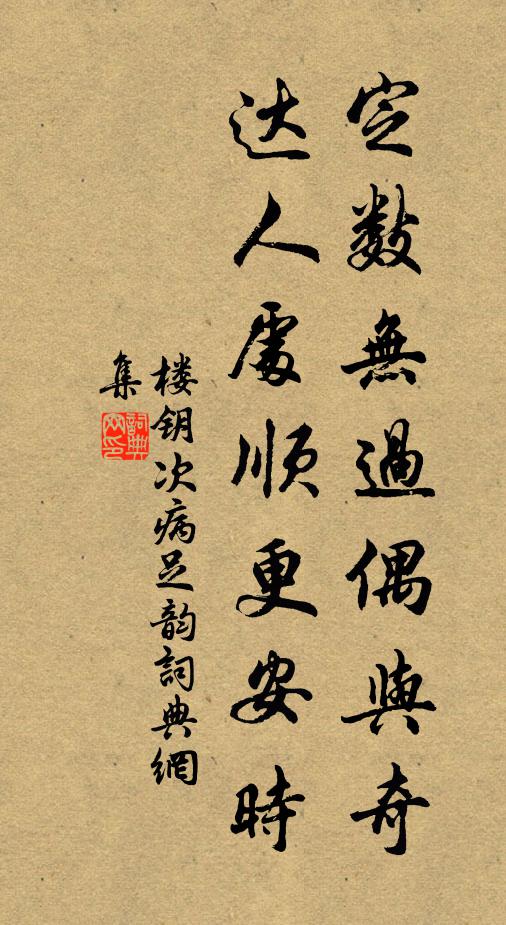 定数無過偶與奇
达人處順更安時
楼钥次病足韵詞典網
集
詞典
网印